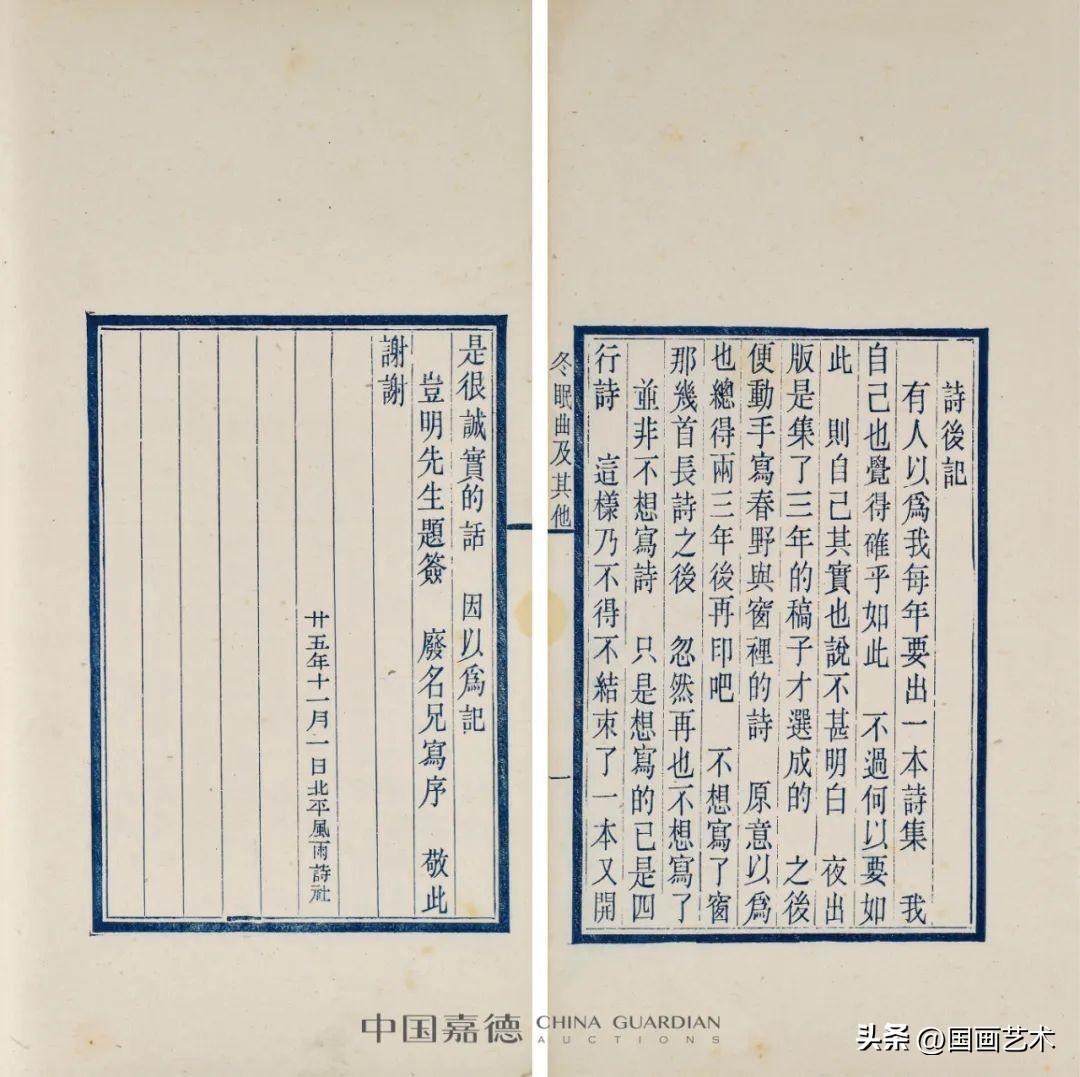 詩後記
有人以爲我每年要出一本詩集　我
自己也覺得確乎如此　不過何以要如
此　則自己其實也說不甚明白　夜出
版是集了三年的稿子才選成的　之後
便動手寫春野與窗裡的詩　原意以爲
也總得兩三年後再印吧　不想寫了窗
那幾首長詩之後　忽然再也不想寫了
並非不想寫詩　只是想寫的已是四
行詩　這樣乃不得不結束了一本又開
冬眠曲及其他
一
是很誠實的話　因以爲記
豈明先生題簽　廢名兄寫序　敬此
謝謝
廿五年十一月一日北平風雨詩社
中国嘉德 CHINA GUARDIAN
AUCTIONS
头条 @国画艺术